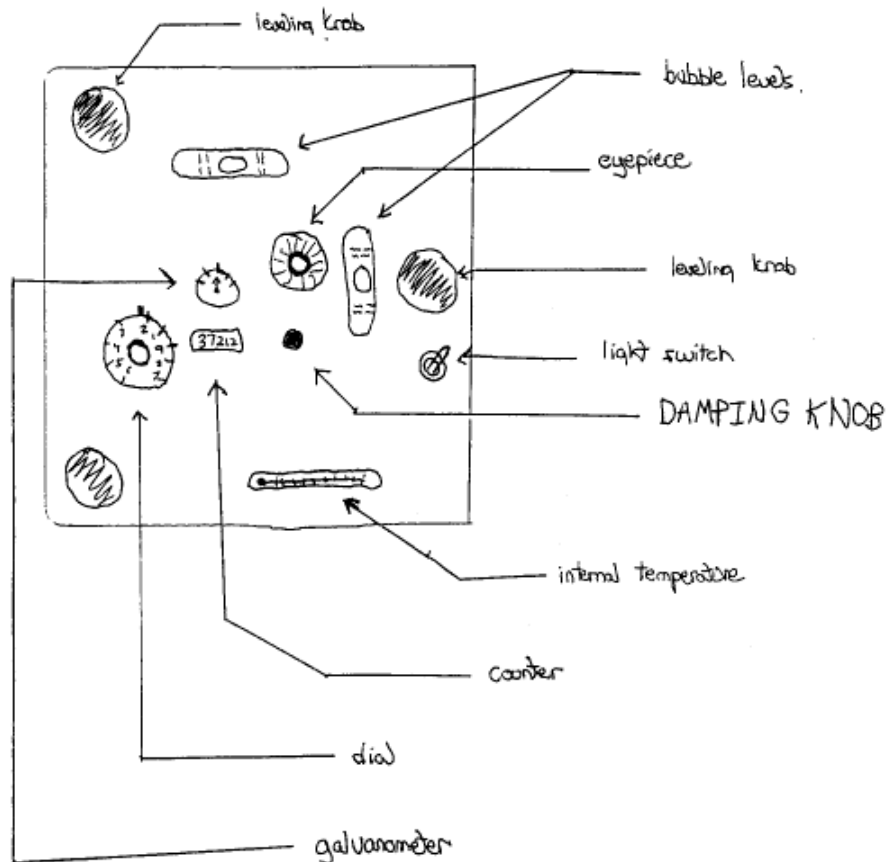 leveling knob
bubble levels.
eyepiece
leveling knob
37212
light switch
DAMPING KNOB
internal temperature
counter
dial
galvanometer